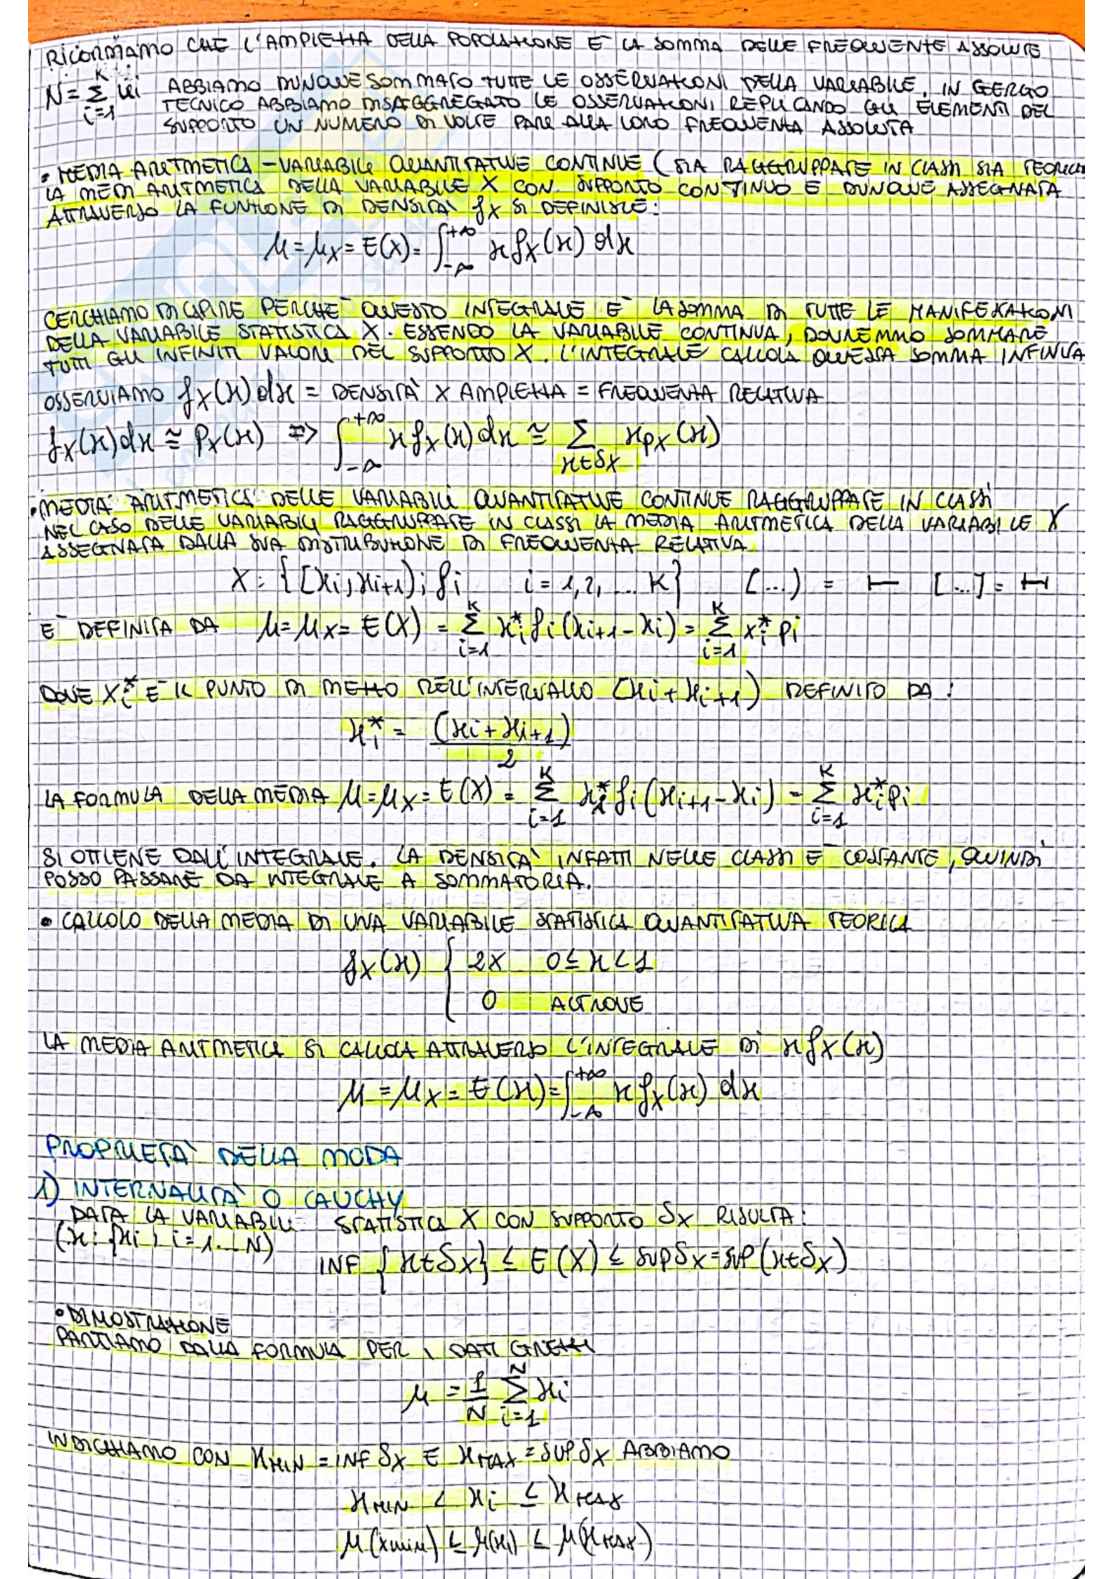 RICORDIAMO CHE L'AMPIEZZA DELLA POPOLAZIONE E' LA SOMMA DELLE FREQUENZE ASSOLUTE
N = Σ_{i=1}^{K} ni ABBIAMO DUNQUE SOMMATO TUTTE LE OSSERVAZIONI DELLA VARIABILE. IN GERGO
TECNICO ABBIAMO DISAGGREGATO LE OSSERVAZIONI REPLICANDO GLI ELEMENTI DEL
SUPPORTO UN NUMERO DI VOLTE PARI ALLA LORO FREQUENZA ASSOLUTA
• MEDIA ARITMETICA - VARIABILI QUANTITATIVE CONTINUE (SIA RAGGRUPPATE IN CLASSI SIA TEORICHE
LA MEDI ARITMETICA DELLA VARIABILE X CON SUPPORTO CONTINUO E DUNQUE ASSEGNATA
ATTRAVERSO LA FUNZIONE DI DENSITA' fX SI DEFINISCE:
μ = μX = E(X) = ∫_{-∞}^{+∞} x fX(x) dx
CERCHIAMO DI CAPIRE PERCHE' QUESTO INTEGRALE E' LA SOMMA DI TUTTE LE MANIFESTAZIONI
DELLA VARIABILE STATISTICA X. ESSENDO LA VARIABILE CONTINUA, DOVREMMO SOMMARE
TUTTI GLI INFINITI VALORI DEL SUPPORTO X. L'INTEGRALE CALCOLA QUESTA SOMMA INFINITA
OSSERVIAMO fX(x) dx = DENSITA' X AMPIEZZA = FREQUENZA RELATIVA
fX(x)dx ≅ pX(x) => ∫_{-∞}^{+∞} x fX(x) dx ≅ Σ_{x∈SX} x pX(x)
• MEDIA ARITMETICA DELLE VARIABILI QUANTITATIVE CONTINUE RAGGRUPPATE IN CLASSI
NEL CASO DELLE VARIABILI RAGGRUPPATE IN CLASSI LA MEDIA ARITMETICA DELLA VARIABILE X
ASSEGNATA DALLA SUA DISTRIBUZIONE DI FREQUENZA RELATIVA
X : {[xi; xi+1); fi i = 1, 2, ... K} [...) = ⊢ [...] = H
E' DEFINITA DA μ = μX = E(X) = Σ_{i=1}^{K} xi* fi (xi+1 - xi) = Σ_{i=1}^{K} xi* pi
DOVE Xi* E' IL PUNTO DI MEZZO DELL'INTERVALLO (xi + xi+1) DEFINITO DA:
xi* = (xi + xi+1) / 2
LA FORMULA DELLA MEDIA μ = μX = E(X) = Σ_{i=1}^{K} xi* fi (xi+1 - xi) = Σ_{i=1}^{K} xi* pi
SI OTTIENE DALL'INTEGRALE. LA DENSITA' INFATTI NELLE CLASSI E' COSTANTE, QUINDI
POSSO PASSARE DA INTEGRALE A SOMMATORIA.
• CALCOLO DELLA MEDIA DI UNA VARIABILE STATISTICA QUANTITATIVA TEORICA
fX(x) { 2X 0 ≤ x < 1
0 ALTROVE
LA MEDIA ARITMETICA SI CALCOLA ATTRAVERSO L'INTEGRALE DI x fX(x)
μ = μX = E(x) = ∫_{-∞}^{+∞} x fX(x) dx
PROPRIETA' DELLA MODA
1) INTERNALITA' O CAUCHY
DATA LA VARIABILE STATISTICA X CON SUPPORTO SX RISULTA:
(x: {xi; i = 1 ... N) INF {x∈SX} ≤ E(X) ≤ SUP SX = SUP (x∈SX)
• DIMOSTRAZIONE
PARTIAMO DALLA FORMULA PER I DATI GREZZI
μ = 1/N Σ_{i=1}^{N} xi
INDICHIAMO CON xMIN = INF SX E xMAX = SUP SX ABBIAMO
xMIN ≤ xi ≤ xMAX
μ(xmin) ≤ μ(xi) ≤ μ(xMAX)